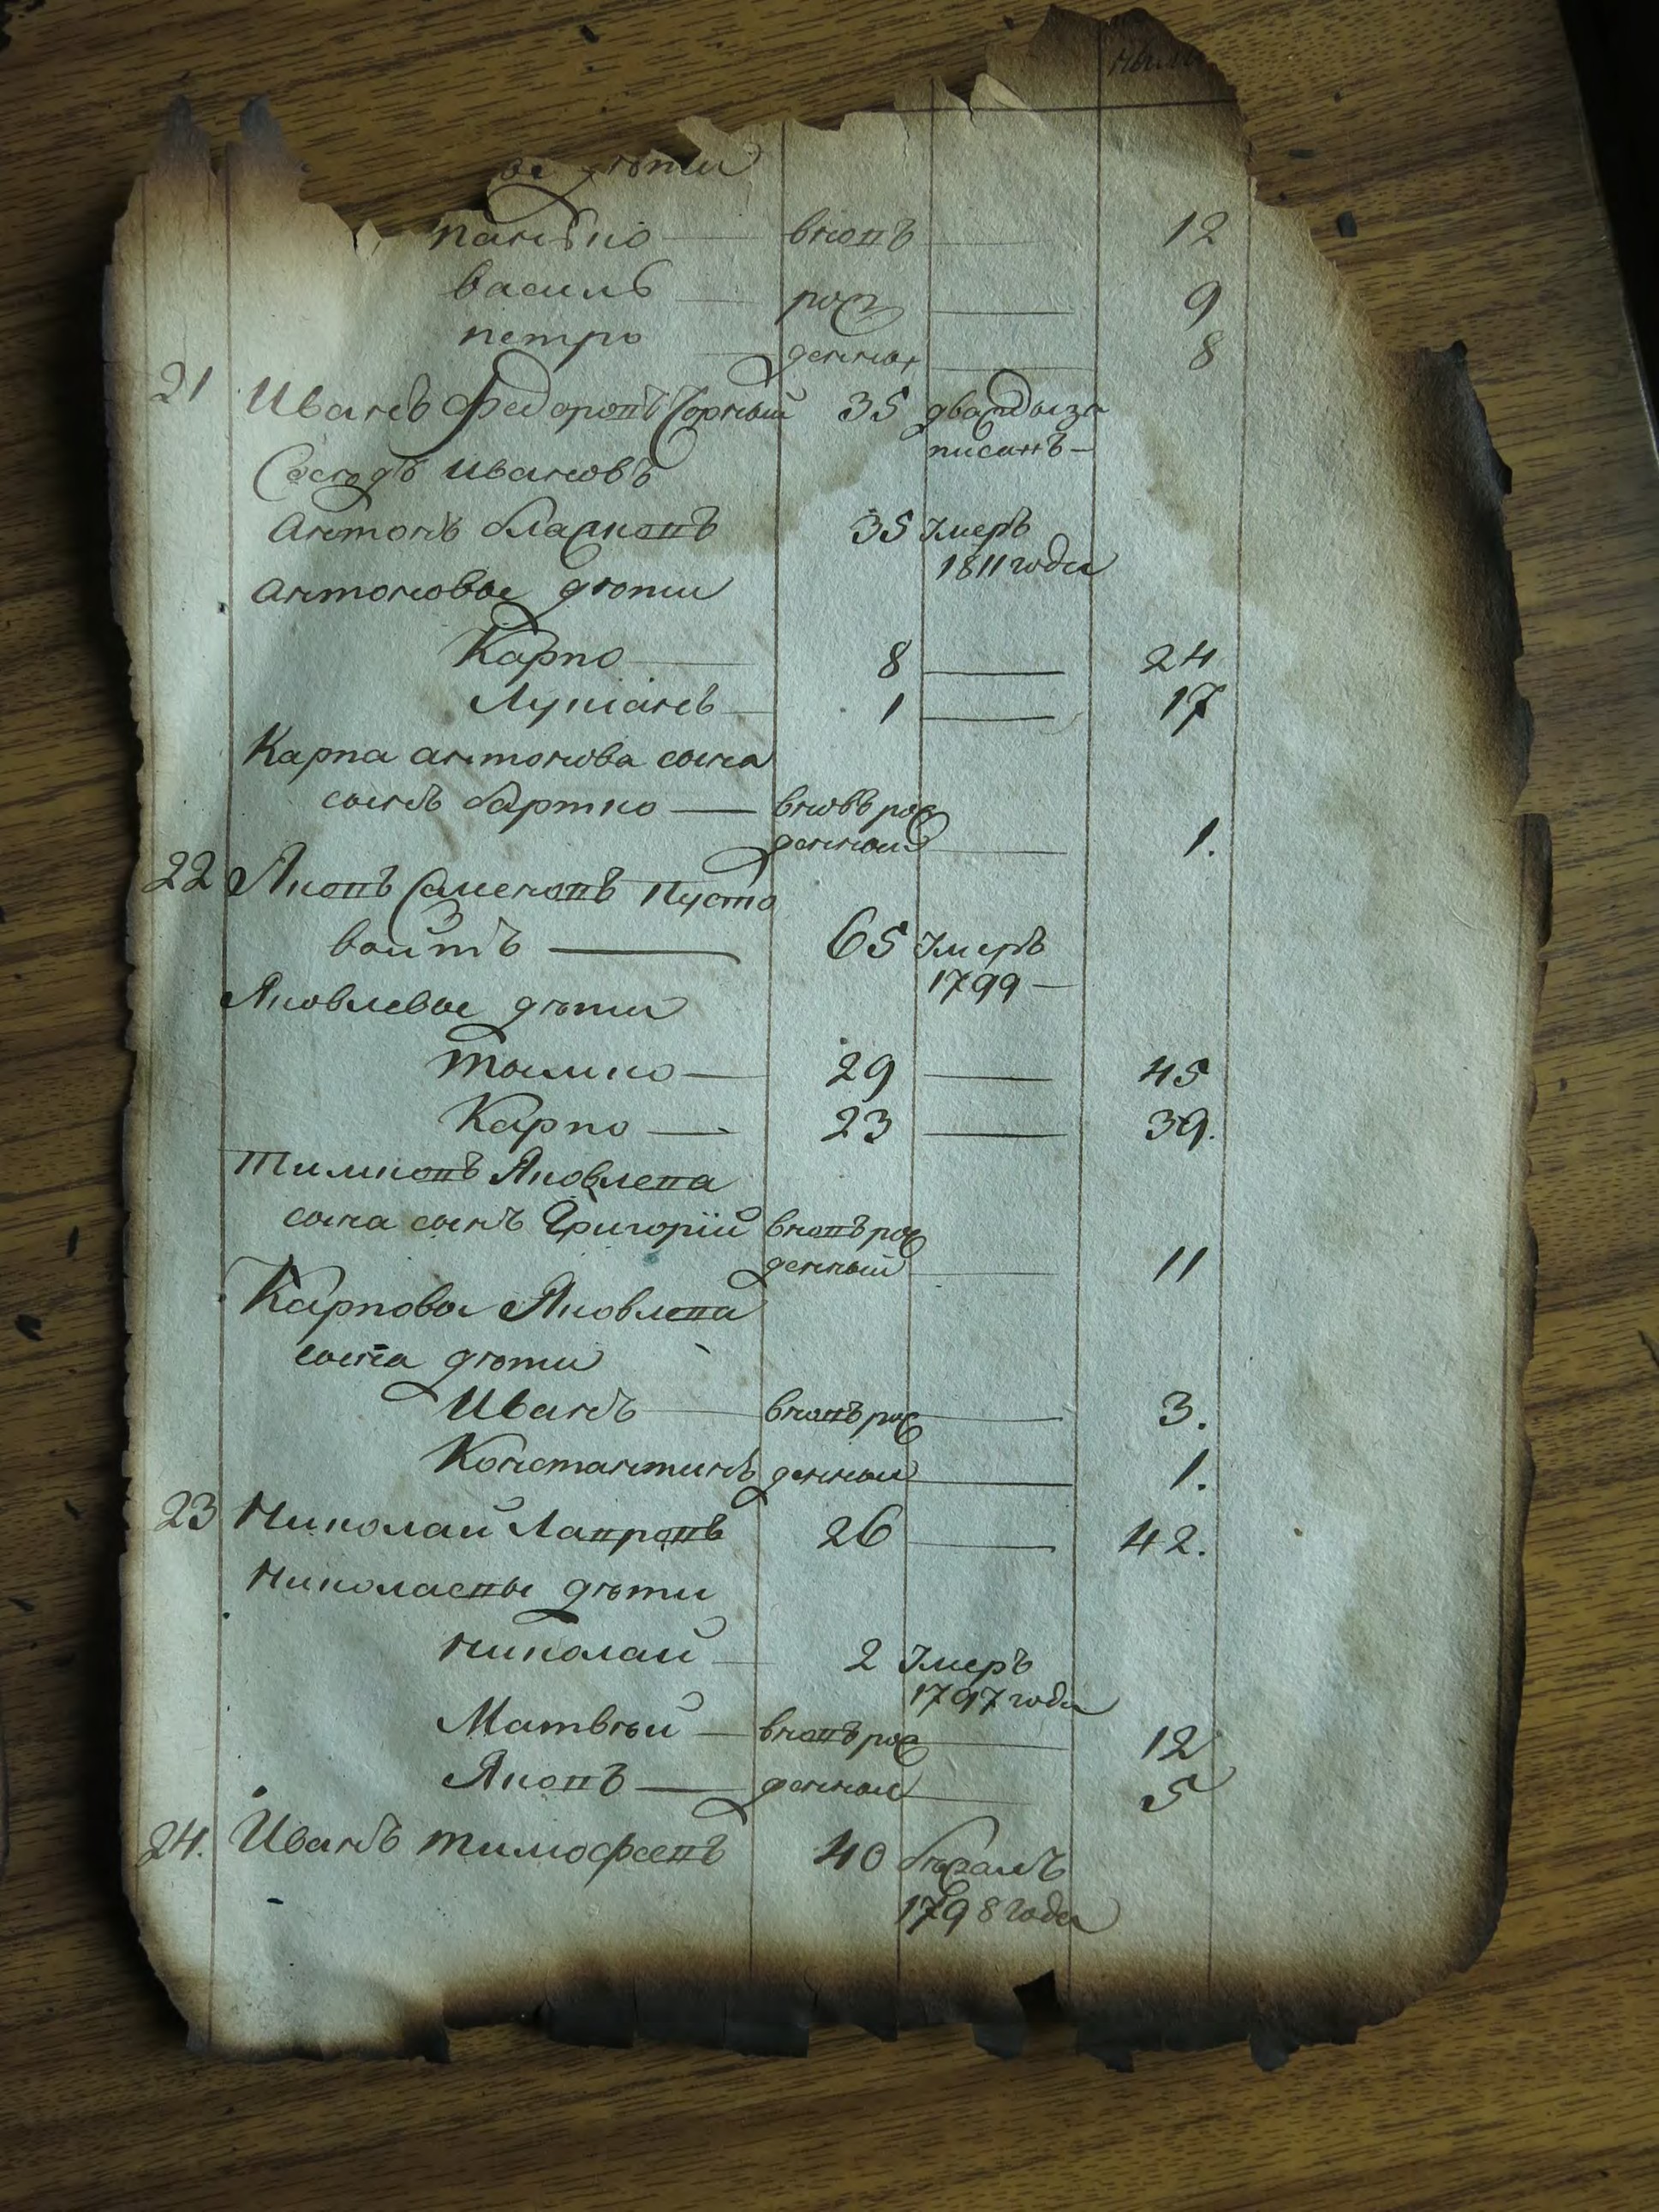 ныли
ое дѣти
Панько вновъ 12
Василь рож 9
Петро денные 8
21 Иванъ Федоровъ Чорный 35 дважды за
писанъ
Соседъ Ивановъ
Антонъ Власковъ 35 Умеръ
1811 годи
Антоновые дѣти
Карпо 8 24
Лукіанъ 1 17
Карпа Антонова сына
сынъ Бартко вновь рож
денный 1.
22 Яковъ Саменовъ Пусто
войтъ 65 Умеръ
1799
Яковлевые дѣти
Тымко 29 45
Карпо 23 39.
Тимковъ Яковлева
сына сынъ Григорій вновъ рож
денный 11
Карповы Яковлева
сына дѣти
Иванъ вновъ рож 3.
Константинъ денные 1.
23 Николай Лавровъ 26 42.
Николаевы дѣти
Николай 2 Умеръ
1797 годи
Матвѣй вновъ рож 12
Яковъ денные 5
24. Иванъ Тимофеевъ 40 бѣжалъ
1798 годи